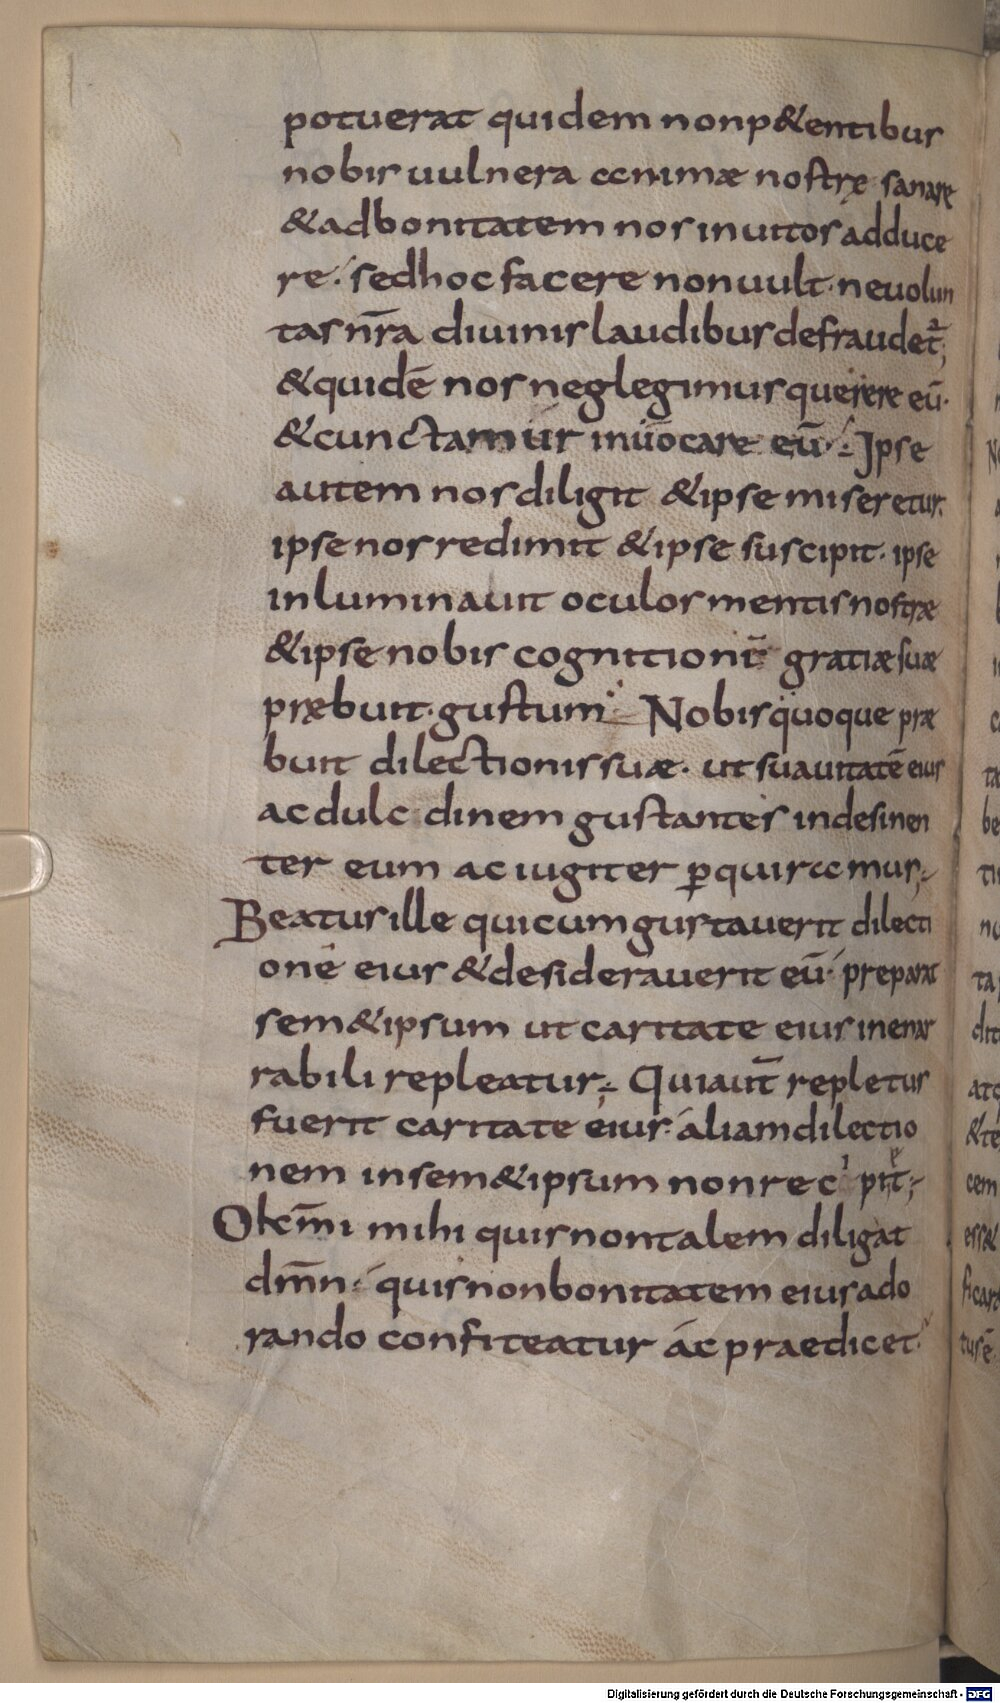 potuerat quidem non p&entibus
nobis uulnera animæ nostrę sanare
& ad bonitatem nos inuitos adduce
re. sed hoc facere non uult. ne uolun
tas nr̄a diuinis laudibus defraudet᷑;
& quidē nos neglegimus querere eū.
& cunctamur inuocare eū. Ipse
autem nos diligit & ipse miseretur.
ipse nos redimit & ipse suscipit. ipse
inluminauit oculos mentis nostræ
& ipse nobis cognitionē gratiæ suæ
prębuit. gustum. Nobis quoque præ
buit dilectionis suæ. ut suauitatē eius
ac dulc dinem gustantes indesinen
ter eum ac iugiter ꝑquiramus;
Beatus ille quicum gustauerit dilecti
onē eius & desiderauerit eū. preparat
sem&ipsum ut caritate eius inenar
rabili repleatur; Quiaut̄ repletus
fuerit caritate eius. aliam dilectio
nem in sem&ipsum non recipit;
O kc̄mi mihi quis non talem diligat
dm̄n. quis non bonitatem eius ado
rando confiteatur ac praedicet.
Digitalisierung gefördert durch die Deutsche Forschungsgemeinschaft - DFG